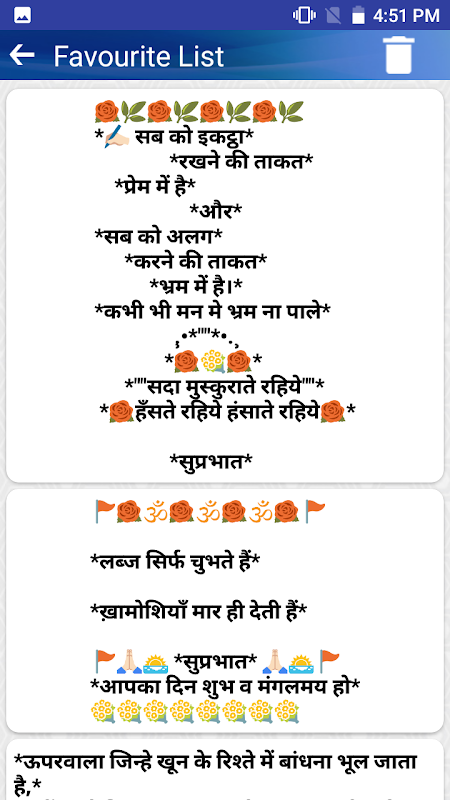 4:51 PM
Favourite List
🌹🌿🌹🌿🌹🌿🌹🌿
*✍🏻 सब को इकट्ठा*
*रखने की ताकत*
*प्रेम में है*
*और*
*सब को अलग*
*करने की ताकत*
*भ्रम में है।*
*कभी भी मन मे भ्रम ना पाले*
¸.•*""*•.¸
*🌹💐🌹*
*""सदा मुस्कुराते रहिये""*
*🌹हँसते रहिये हंसाते रहिये🌹*
*सुप्रभात*
🚩🌹🕉🌹🕉🌹🕉🌹🚩
*लब्ज सिर्फ चुभते हैं*
*ख़ामोशियाँ मार ही देती हैं*
🚩🙏🏻🌅 *सुप्रभात* 🙏🏻🌅🚩
*आपका दिन शुभ व मंगलमय हो*
💐💐💐💐💐💐💐💐
*ऊपरवाला जिन्हे खून के रिश्ते में बांधना भूल जाता
है,*